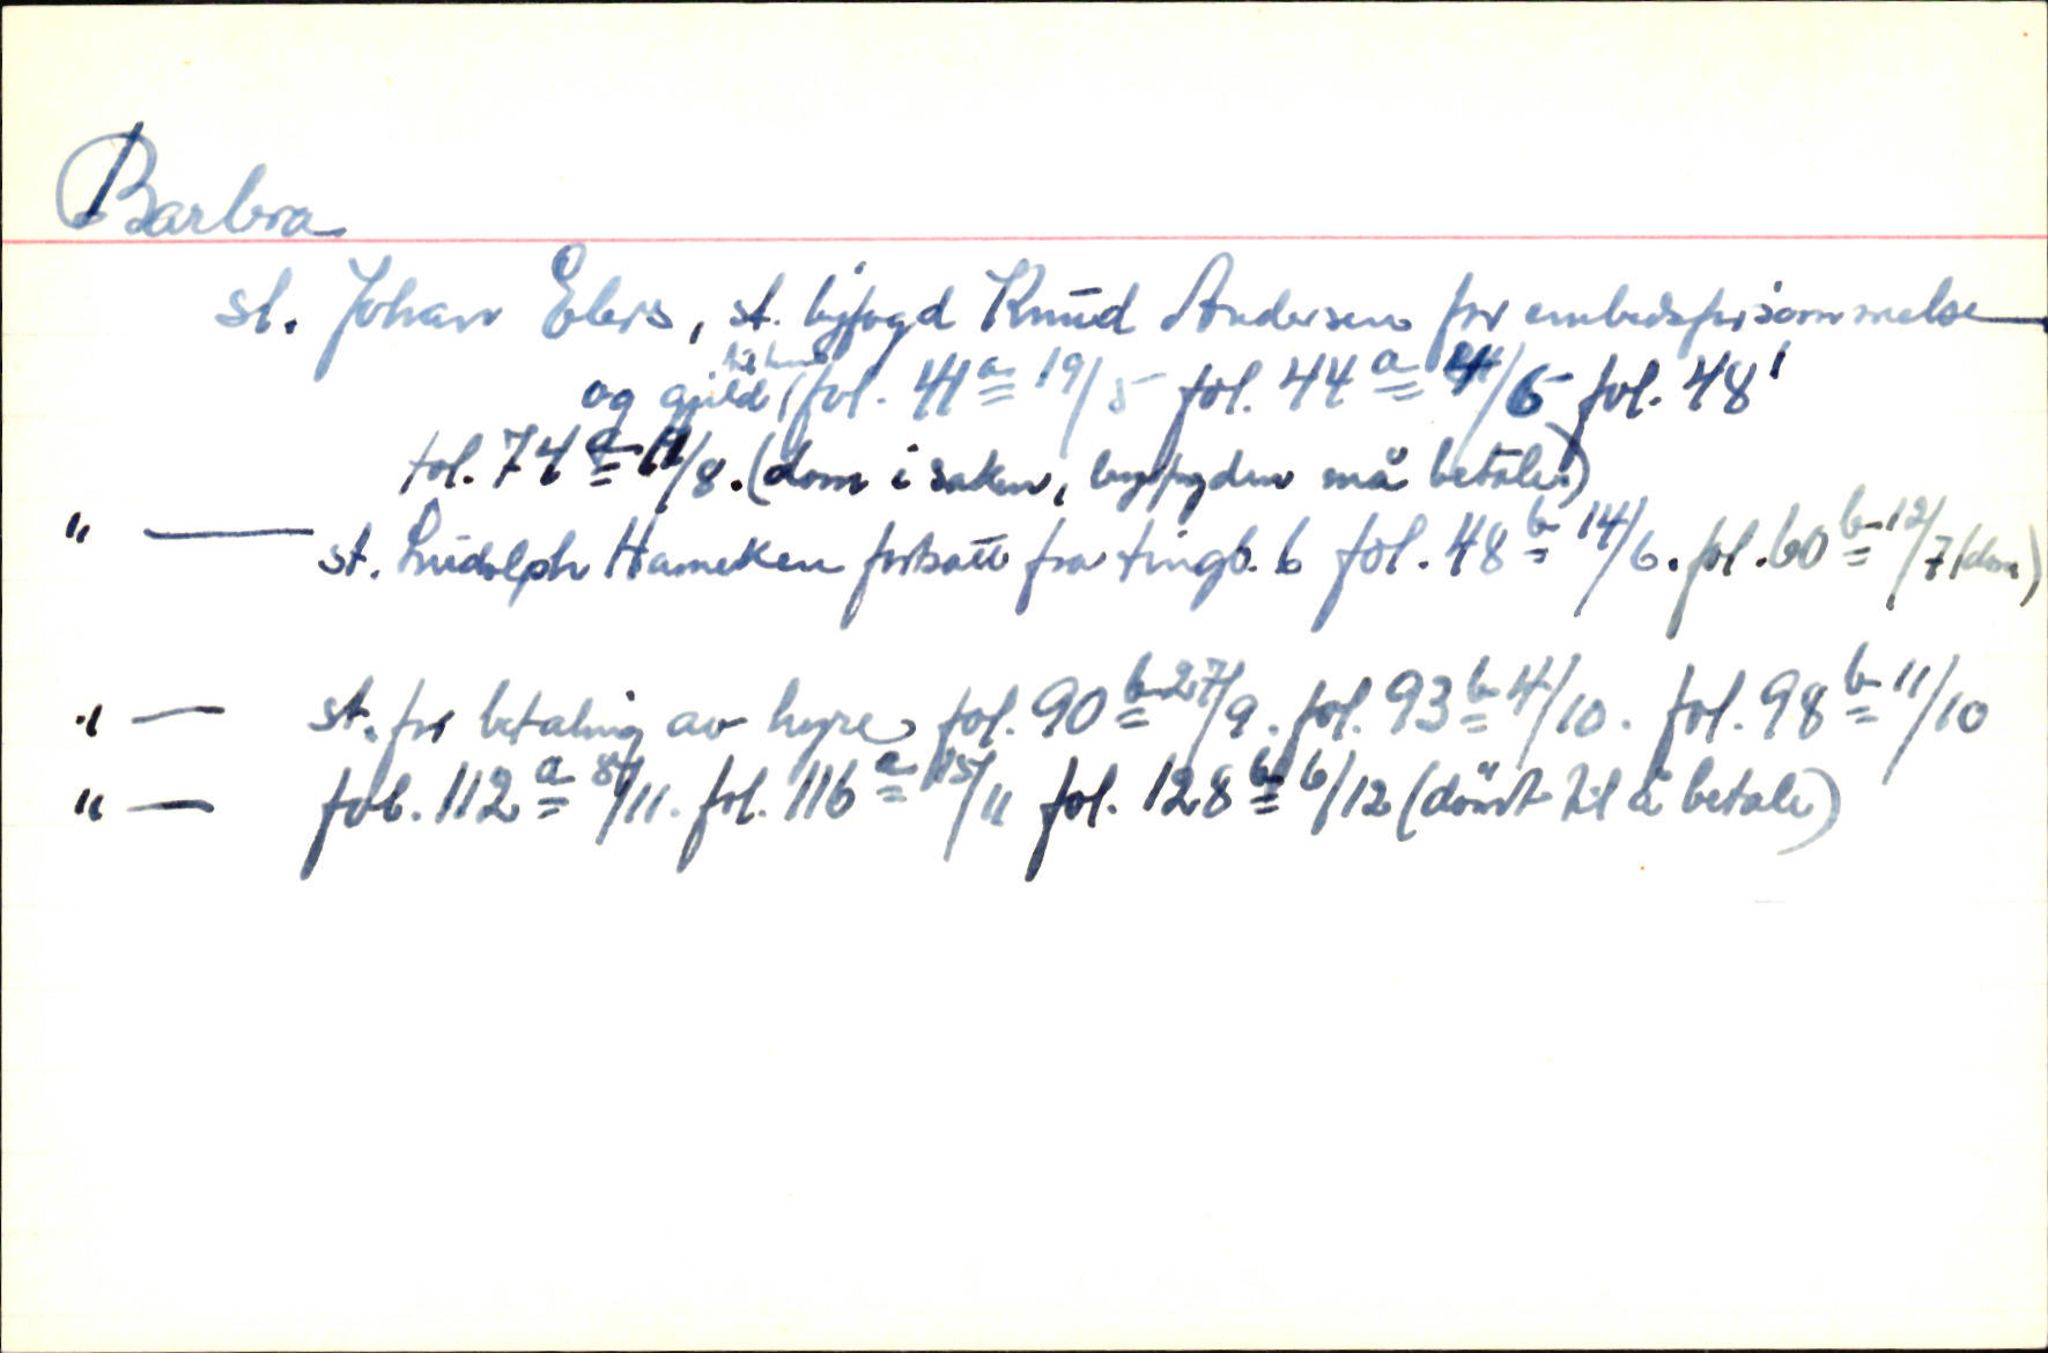 Barbra
sl. Johan Elers, st. byfogd Knud Andersen for embedsforsømmelse
og gjeld til hende (fol. 41 a 19/5 fol. 44 a 4/6 fol. 48
fol. 74 a 11/8. (dom i saken, byfogden må betale)
" — st. Ludolph Hameken fortsatt fra tingb. 6 fol. 48 b 14/6. fol. 60 b 12/7 (dom)
" — st. for betaling av hyre fol. 90 b 27/9. fol. 93 b 4/10. fol. 98 b 11/10
" — fol. 112 a 8/11. fol. 116 a 15/11 fol. 128 b 6/12 (dömt til å betale)